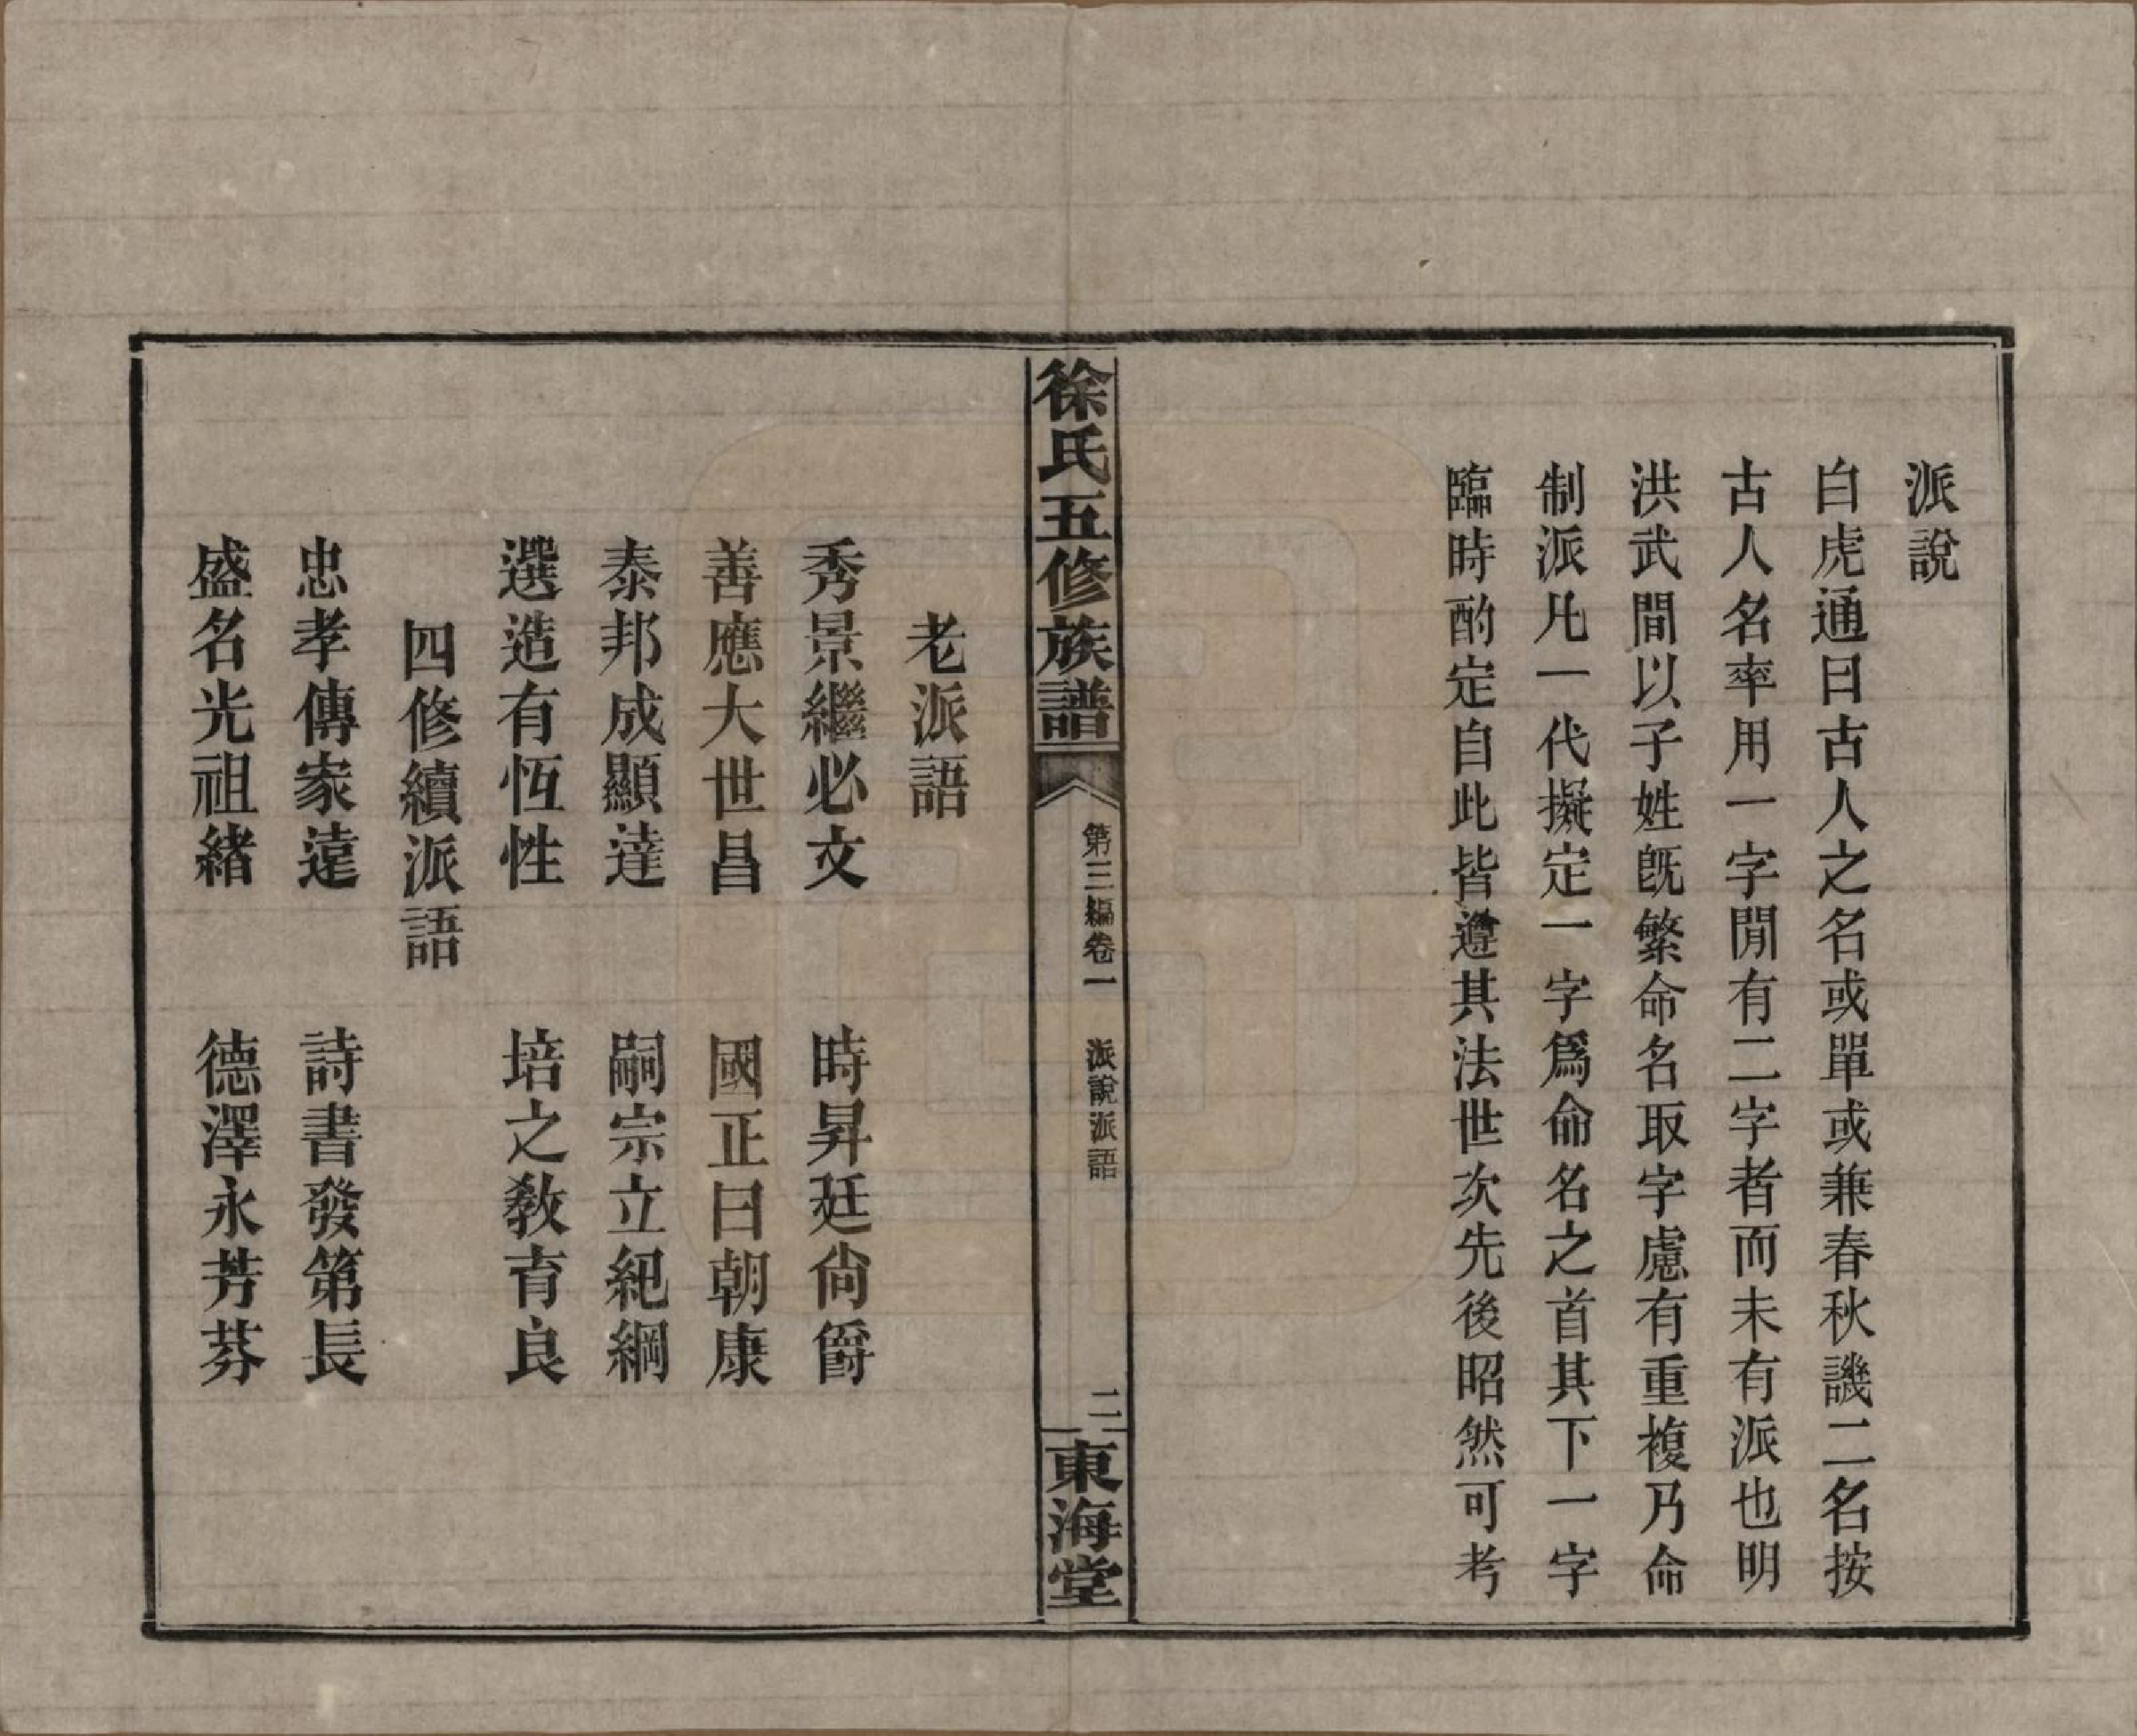 派說
白虎通曰古人之名或單或兼春秋譏二名按
古人名率用一字閒有二字者而未有派也明
洪武間以子姓旣繁命名取字慮有重複乃命
制派凡一代擬定一字爲命名之首其下一字
臨時酌定自此皆遵其法世次先後昭然可考
徐氏五修族譜
第三編卷一
派說派語
二
東海堂
老派語
秀景繼必文 時昇廷尙爵
善應大世昌 國正曰朝康
泰邦成顯達 嗣宗立紀綱
選造有恆性 培之敎育良
四修續派語
忠孝傳家遠 詩書發第長
盛名光祖緒 德澤永芳芬